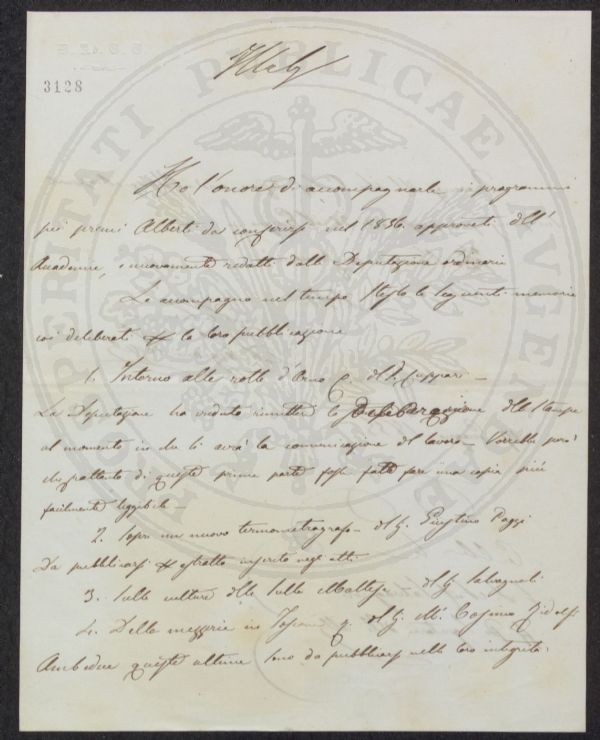 3128
Ho l'onore di accompagnarle i programmi
pei premi Alberti da conferirsi nel 1856. approvati dall'
Accademia, e nuovamente redatti dalla Deputazione ordinaria
Le accompagno nel tempo stesso le seguenti memorie
coi deliberati per la loro pubblicazione
1. Intorno alle rotte d'Arno del Cuppari —
La Deputazione ha creduto rimettere la deliberazione della stampa
al momento in che si avrà la comunicazione del lavoro — Vorrebbe però
che frattanto di questa prima parte fosse fatta fare una copia più
facilmente leggibile —
2. Sopra un nuovo termometrografo — del S. Faustino Pozzi
Da pubblicarsi per estratto inserito negli atti
3. Sulla cultura della Sulla Maltese del S. Salvagnoli
4. Della mezzeria in Toscana del S. M. Cosimo Ridolfi
Ambedue queste ultime sono da pubblicarsi nella loro integrità.
PERITATI PUBLICAE AUGENDAE